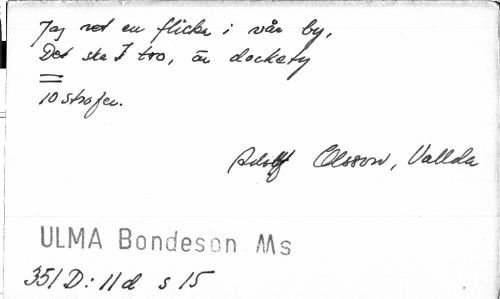 Jag vet en flicka i vår by,
Det ska I tro, än dockety
10 strofer.
Adolf Olsson, Vallda
ULMA Bondeson Ms
351 D: 11d s 15